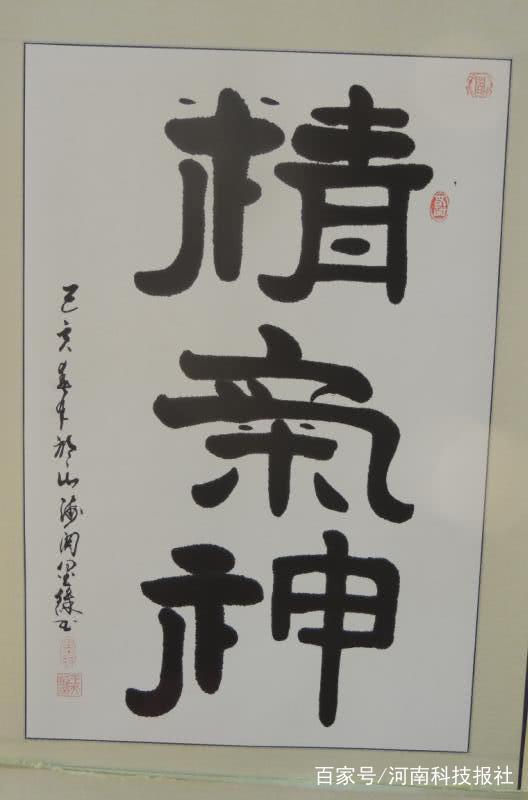 精
氣
神
己亥春月於山海関墨緣書
百家号/河南科技报社